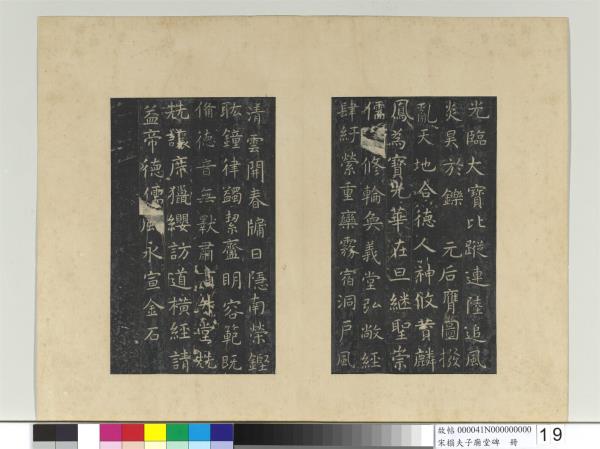 光臨大寶比蹤連陸追風
炎昊於鑠 元后膺圖撥
亂天地合德人神攸贊麟
鳳為寶光華在旦繼聖崇
儒修輪奐義堂弘敞經
肆紆縈重欒霧宿洞戶風
清雲開春牖日隱南榮鏗
耾鐘律蠲絜齍明容範既
備德音無斁肅肅升堂兢
兢讓席獵纓訪道橫經請
益帝德儒風永宣金石
故帖 000041N000000000
宋搨夫子廟堂碑 冊
19